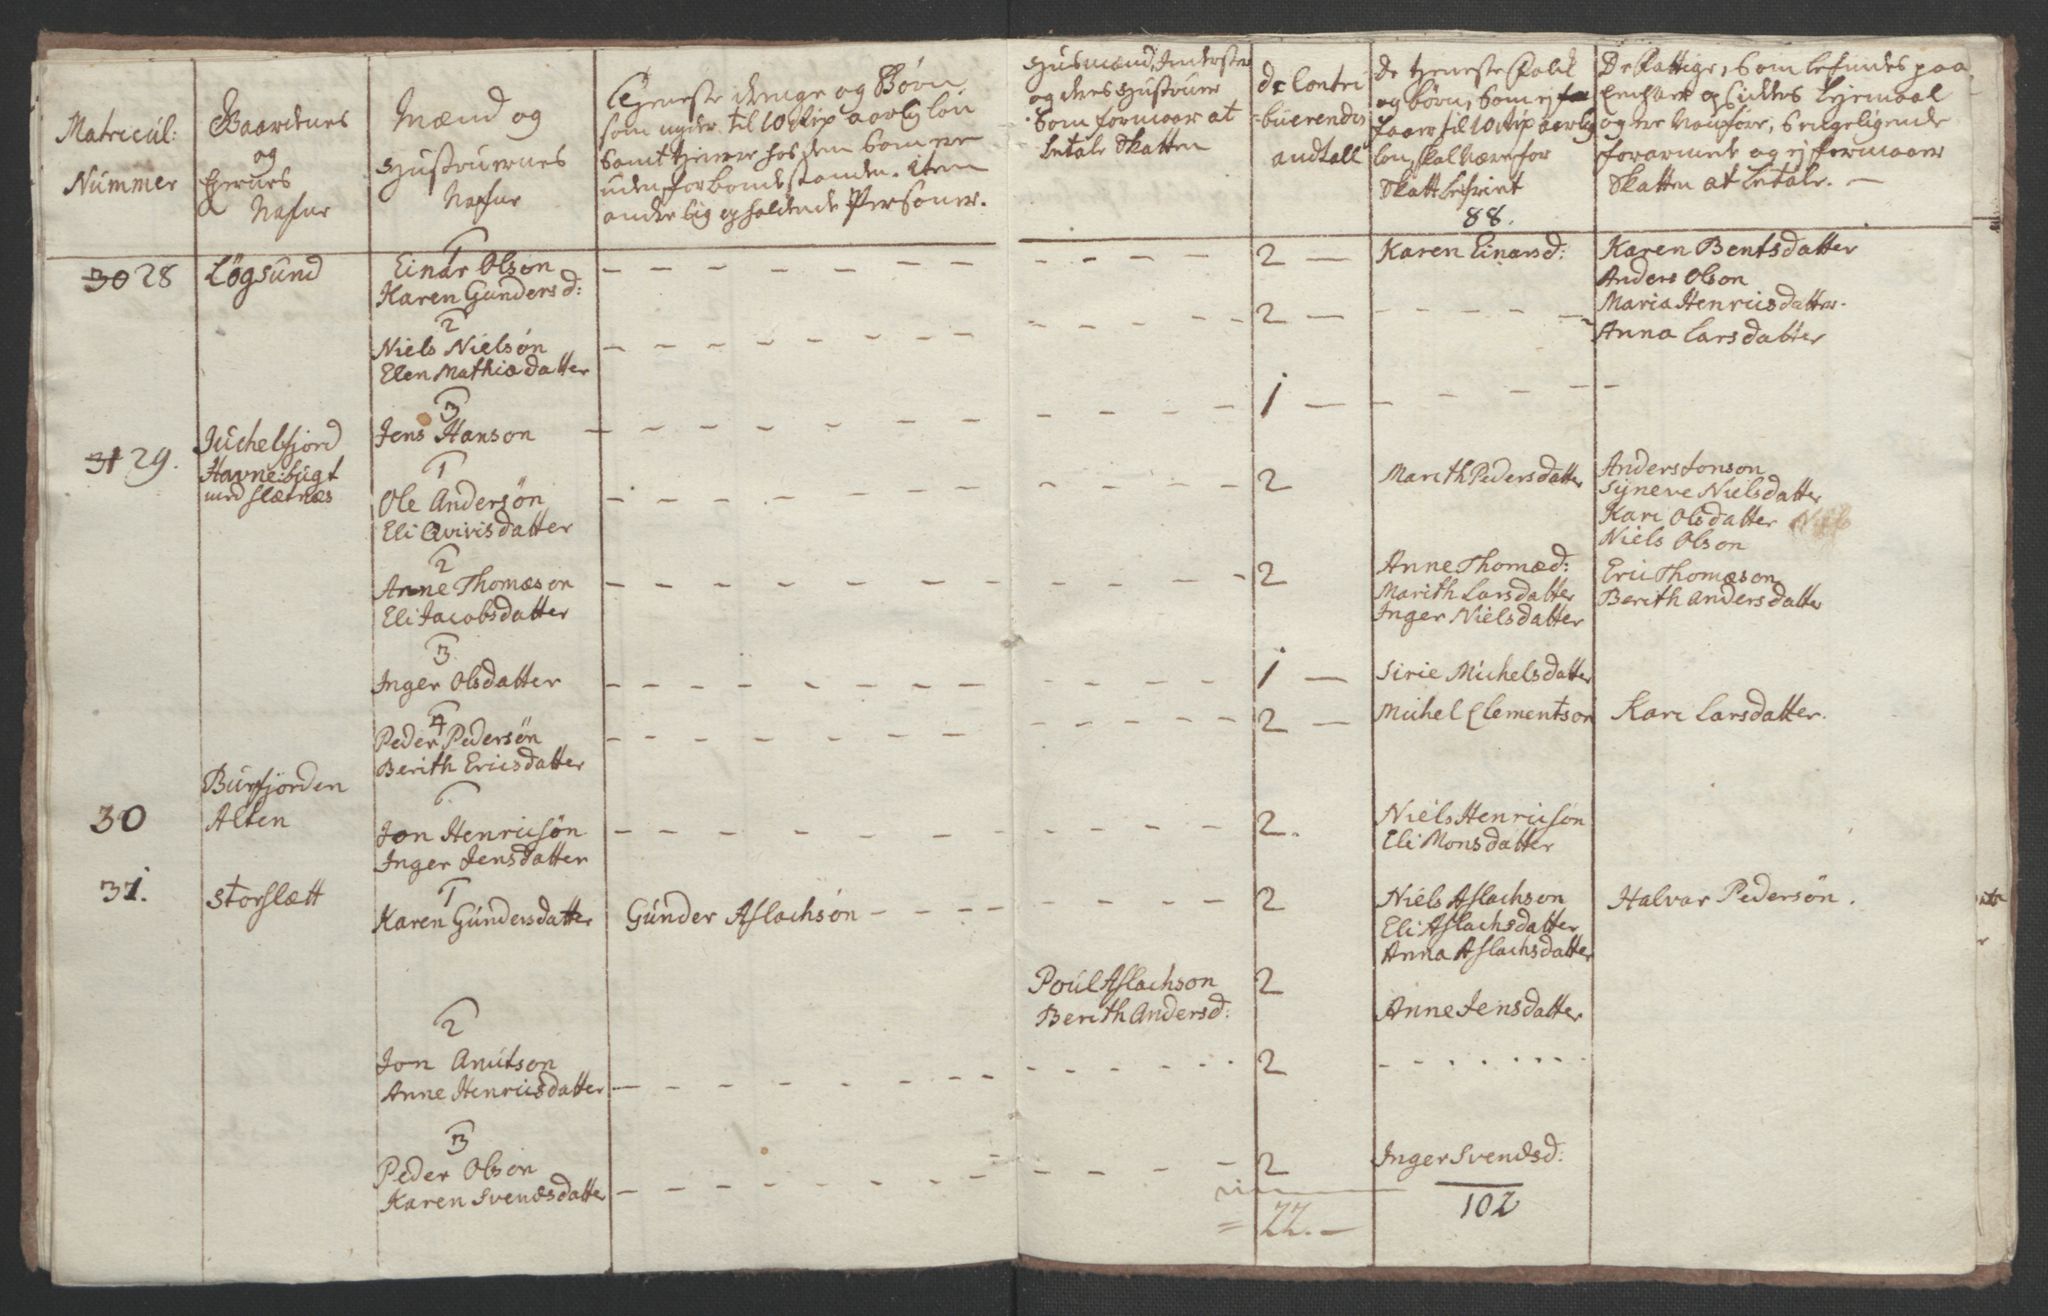 Matricul:
Nummer
Gaardenes
og
Eiernes
Nafne
Mænd og
Hustruernes
Nafne
Tieneste drenge og Børn
som nyder til 10 rdlr aarlig løn
samt tiener hos dem som ere
uden for bondestanden. item
andre sig opholdende Persohner.
Husmænd, Inderster
og deres Hustruer
som formaar at
betale Skatten
de Contri
buerendis
andtall
De tieneste folck
og børn, som ej
faaer til 10 rdlr aarlig
løn, skal være for
Skatt befriet
88.
De Fattige, som befindes paa
og sidder
og ere Vanføre, Sengeliggende
forarmede og ej formaaer
Skatten at betale. —
30 28
Løgsund
1
Einar Olson
Karen Gundersd:
2 —
Karen Einarsd:
Karen Bentsdatter
Anders Olson
Maria Henricsdatter
Anna Larsdatter
2
Niels Nielsøn
Elen Mathiædatter
2 —
3
Jens Hanson
1 —
31 29.
Juchelfjord
Havnebugt
med Slætnæs
1
Ole Andersøn
Eli Qvivisdatter
2
Marith Pedersdatter
Anders Jonson
Syneve Nielsdatter
Kari Olsdatter
Niels Olson
2
Arne Thomæson
Eli Jacobsdatter
2
Anne Thomæd:
Marith Larsdatter
Inger Nielsdatter
Eric Thomæson
Berith Andersdatter
3
Inger Olsdatter
1 —
Sirie Michelsdatter
4
Peder Pedersøn
Berith Ericsdatter
2 —
Michel Clementson
Kari Larsdatter.
30
Burfjorden
Alten
Jon Henricsøn
Inger Jensdatter
2.
Niels Henricsøn
Eli Monsdatter
31.
Storslætt
1
Karen Gundersdatter
Gunder Aslachsøn
2
Niels Aslachson
Eli Aslachsdatter
Anna Aslachsdatter
Halvar Pedersøn.
Poul Aslachson
Berith Andersd:
2
Anne Jensdatter
2
Jon Anutson
Anne Henricsdatter
2
3
Peder Olson
Karen Svendsdatter
2
Inger Svendsd:
= 22. —
102